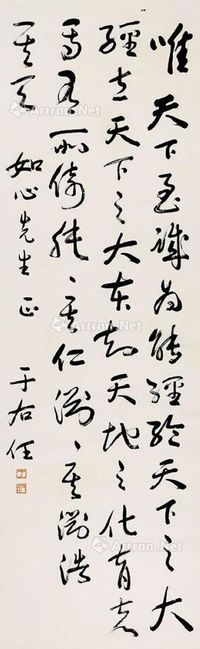 唯天下至誠為能經綸天下之大
經立天下之大本知天地之化育夫
焉有所倚肫〻其仁淵〻其淵浩
〻其天
如心先生正
于右任
Artron.Net
Artron.Net